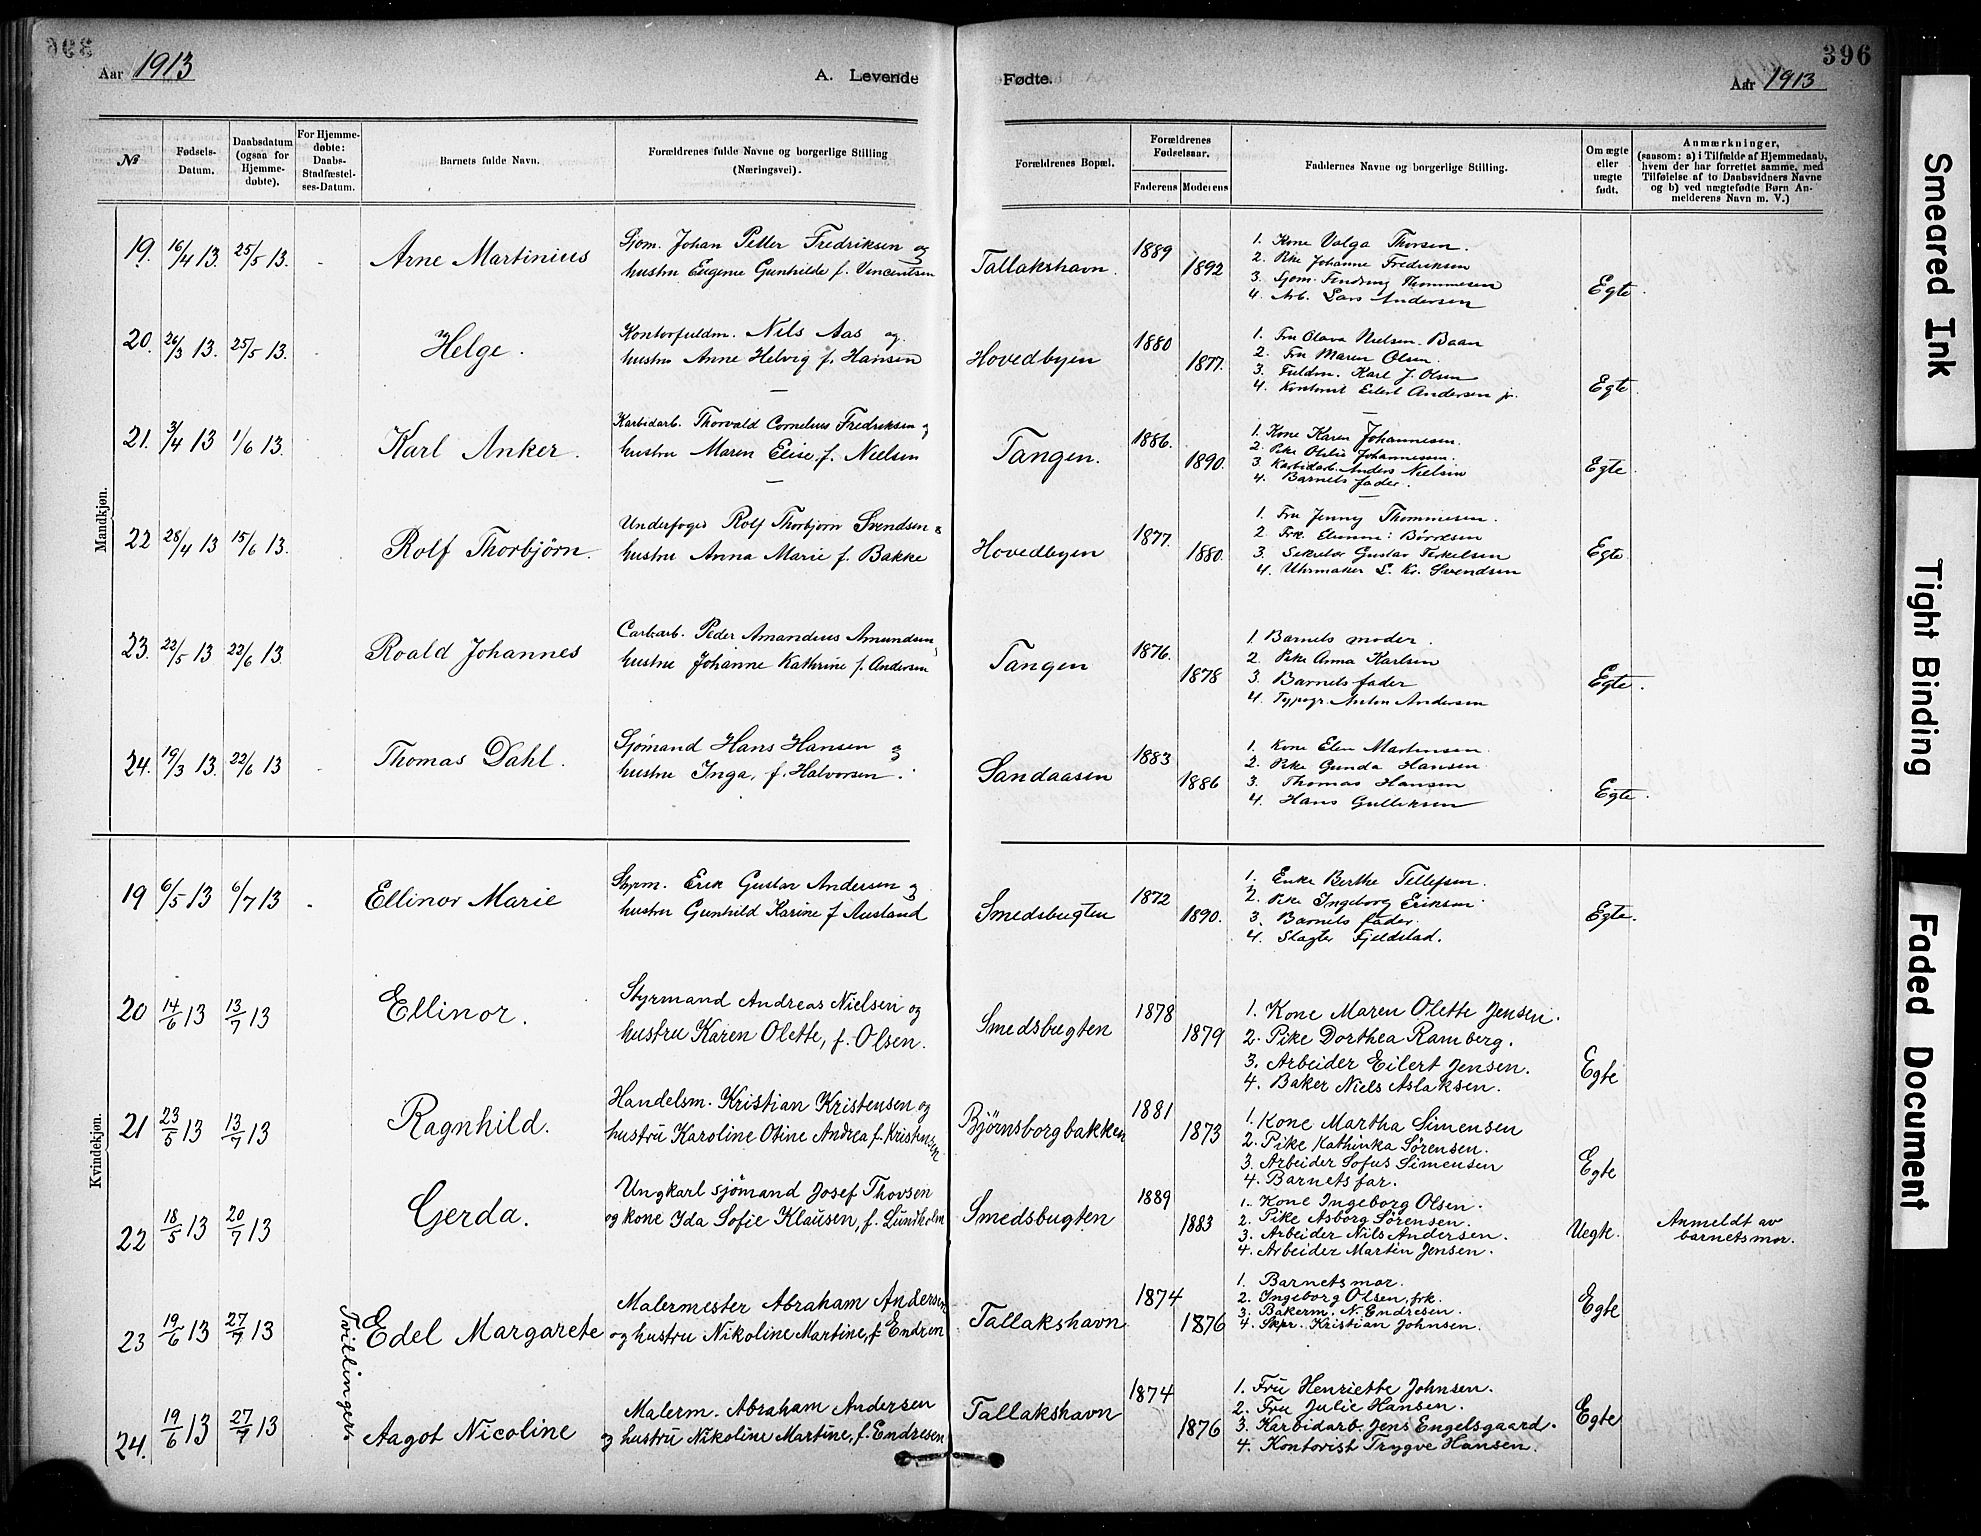 396
Aar 1913
A. Levende Fødte.
Aar 1913
396
№
Fødsels-Datum.
Daabsdatum (ogsaa for Hjemme-døbte).
For Hjemme-døbte: Daabs-Stadfæstel-ses-Datum.
Barnets fulde Navn.
Forældrenes fulde Navne og borgerlige Stilling (Næringsvei).
Forældrenes Bopæl.
Forældrenes Fødselsaar.
Faderens
Moderens
Faddernes Navne og borgerlige Stilling.
Om ægte eller uægte født.
Anmærkninger,
(saasom: a) i Tilfælde af Hjemmedaab, hvem der har forrettet samme, med Tilføielse af to Daabsvidners Navne og b) ved uægtefødte Børn An-melderens Navn m. V.)
Mandkjøn.
19. 16/4 13. 25/5 13. Arne Martinius
Sjøm. Johan Petter Fredriksen og
hustru Eugenie Gunhilde f. Vincentsen
Tallakshavn. 1889 1892
1. Kone Valga Thorsen.
2. Pike Johanne Fredriksen
3. Sjøm. Thommesen
4. Arb. Lars Andersen
Egte.
20. 26/3 13. 25/5 13. Helge.
Kontorfuldm. Nils Aas og
hustru Anne Helvig f. Hansen
Hovedbyen 1880 1877.
1. Fru Olava Nielsen-Baan
2. Fru Maren Olsen.
3. Fuldm. Karl J. Olsen
4. Kontorist Eilert Andersen jr.
Egte
21. 3/4 13 1/6 13. Karl Anker.
Karbidarb. Thorvald Cornelius Fredriksen og
hustru Maren Elise, f. Nielsen
Tangen. 1886. 1890.
1. Kone Karen Johannesen.
2. Pike Otelie Johannessen.
3. Karbidarb. Anders Nielsen
4. Barnets fader.
Egte.
22 28/4 13 15/6 13. Rolf Thorbjörn.
Underfoged Rolf Thorbjørn Svendsen &
hustru Anna Marie f. Bakke
Hovedbyen 1877. 1880.
1. Fru Jenny Thommesen.
2 Frk. Børresen
3. Sekretær Gustav Terkelsen
4. Uhrmaker L. Kr. Svendsen
Egte
23. 22/5 13 22/6 13. Roald Johannes
Carbarb. Peder Amandus Amundsen,
hustru Johanne Kathrine f. Andersen
Tangen 1876. 1878
1. Barnets moder.
2. Pike Anna Karlsen
3. Barnets fader
4. Typogr. Anton Andersen
Egte.
24. 19/3 13. 22/6 13 Thomas Dahl.
Sjømand Hans Hansen og
hustru Inga, f. Halvorsen.
Sandaasen 1883 1886
1. Kone Elen Martinsen.
2. Pike Gunda Hansen
3. Thomas Hansen
4. Hans Gulliksen
Egte.
Kvindekjøn.
19 6/5 13 6/7 13 Ellinor Marie
Styrm. Erik Gustav Andersen og
hustru Gunhild Karine f Austand
Smedsbugten 1872 1890.
1. Enke Berthe Tellefsen.
2. Pike Ingeborg Eriksen.
3. Barnets fader.
4. Slagter Fjeldstad.
Egte.
20 14/6 13 13/7 13 Ellinor.
Styrmand Andreas Nielsen og
hustru Karen Olette, f. Olsen.
Smedsbugten 1878 1879
1. Kone Maren Olette Jensen.
2. Pike Dorthea Ramberg.
3. Arbeider Eilert Jensen.
4. Baker Niels Aslaksen.
Egte
21 23/5 13 13/7 13 Ragnhild.
Handelsm. Kristian Kristensen og
hustru Karoline Otine Andrea f. Kristensen
Bjørnsborgbakken 1881 1873
1. Kone Martha Simensen
2. Pike Kathinka Sørensen.
3. Arbeider Sofus Simensen
4. Barnets far.
Egte
22 18/5 13 20/7 13 Gerda.
Ungkarl sjömand Josef Thovsen
og kone Ida Sofie Klausen, f. Lundholm
Smedsbugten 1889 1883
1. Kone Ingeborg Olsen.
2. Pike Asborg Sørensen.
3. Arbeider Nils Andersen.
4. Arbeider Martin Jensen.
Uegte.
Anmeldt av
barnets mor.
Tvillinger.
23 19/6 13 27/7 13 Edel Margarete
Malermester Abraham Andersen
og hustru Nikoline Martine, f. Endresen
Tallakshavn 1874 1876
1. Barnets mor.
2. Ingeborg Olsen, frk.
3. Bakerm. N. Endresen.
4. Skpr. Kristian Johnsen.
Egte
24. 19/6 13 27/7 13 Aagot Nicoline
Malerm. Abraham Andersen
og hustru Nikoline Martine, f. Endresen
Tallakshavn 1874 1876
1. Fru Henriette Johnsen.
2. Fru Julie Hansen.
3. Karbidarb. Jens Engelsgaard.
4. Kontorist Trygve Hansen.
Egte
Smeared Ink
Tight Binding
Faded Document